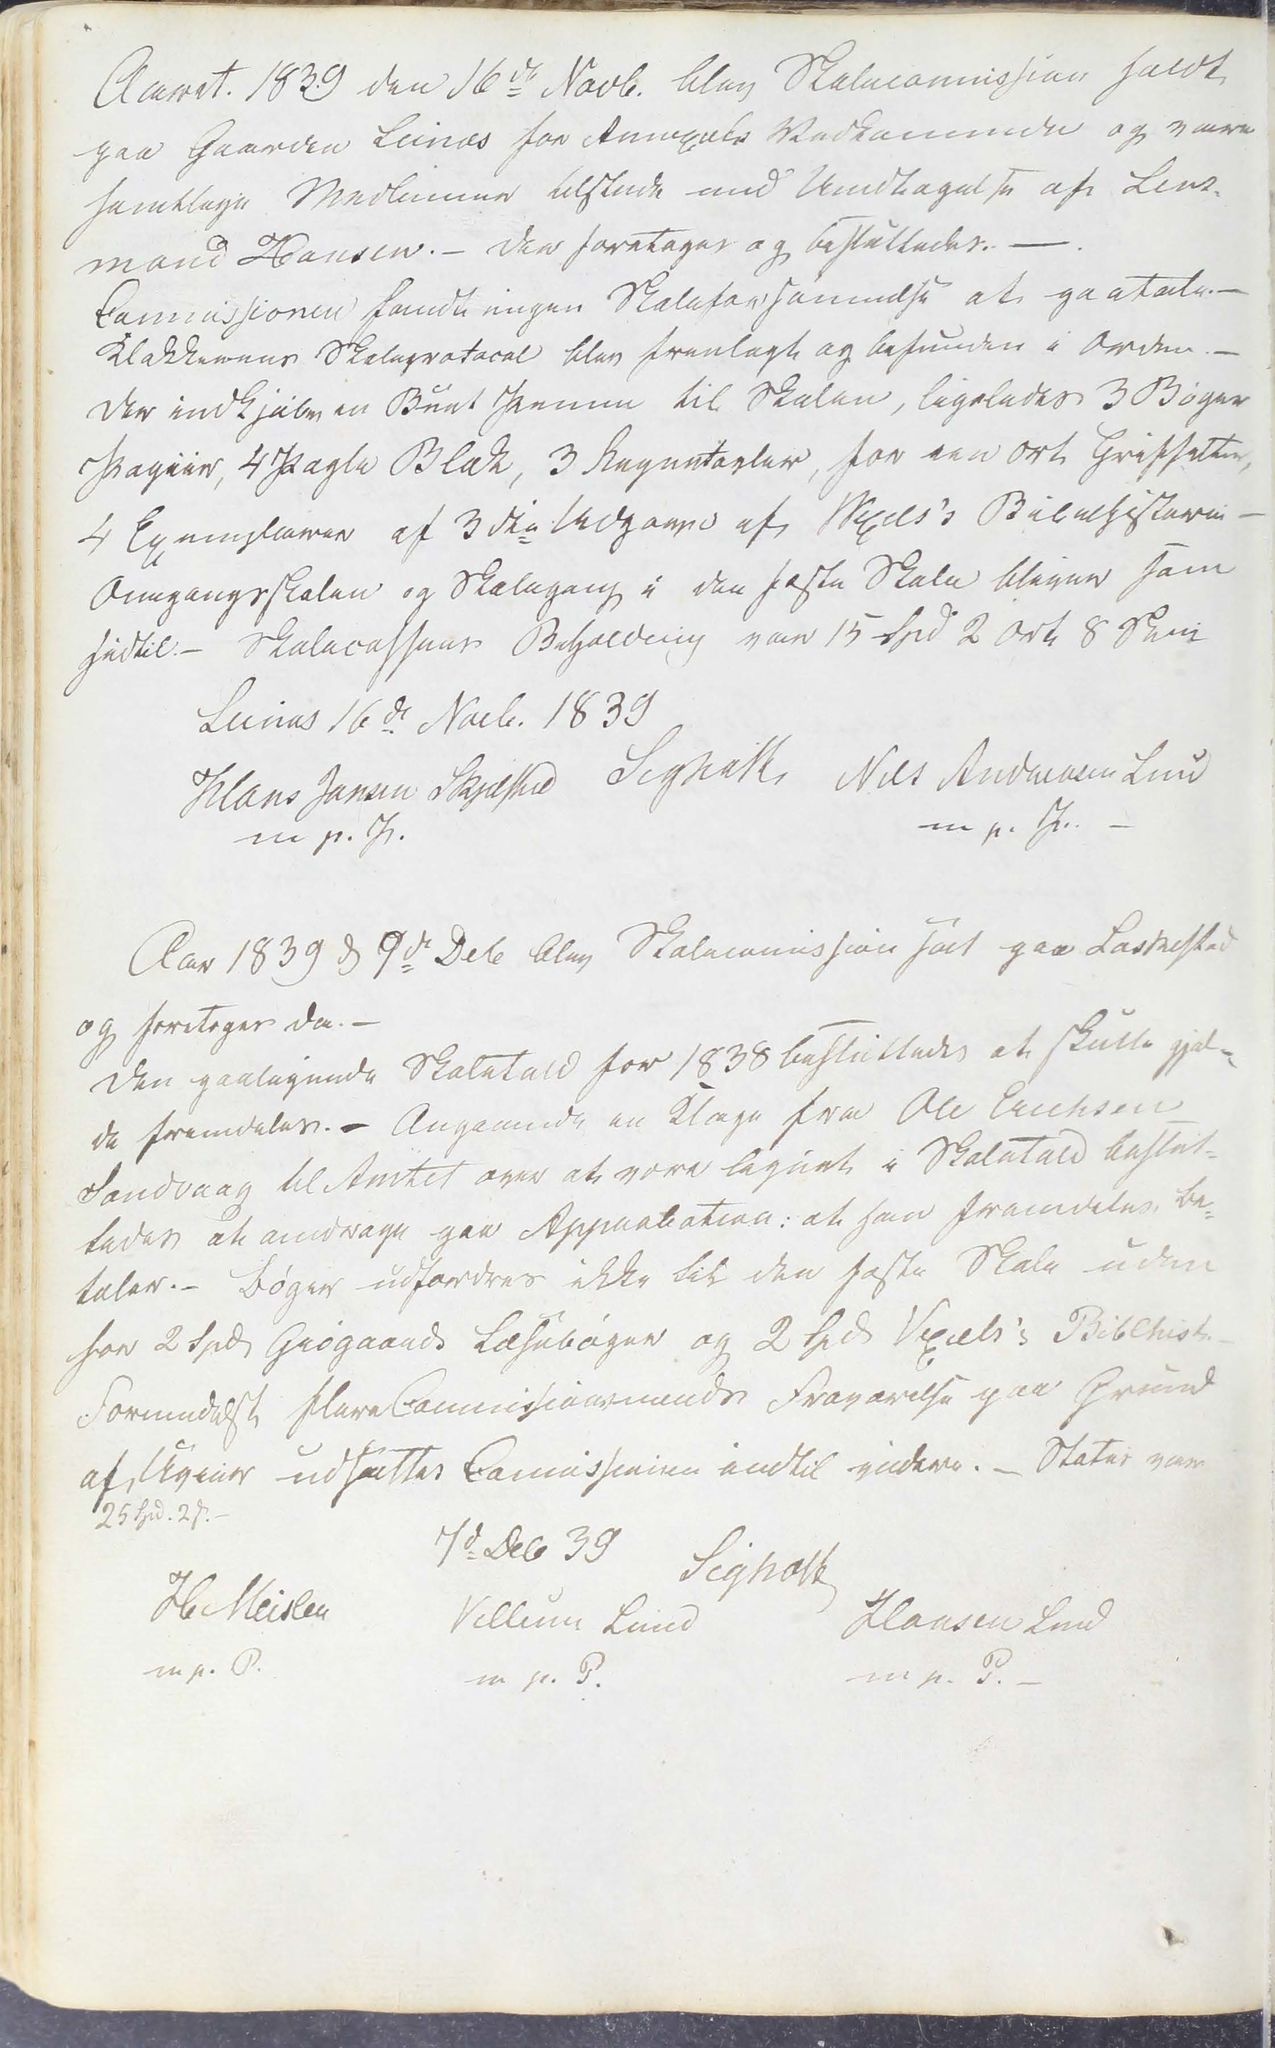 Aaret. 1839 den 16de Novb. blev Skolecommission holdt
paa Gaarden Leines for Annexets Vedkommende og vare
samtlige Medlemmer tilstede med Undtagelse af Lens-
mand Hansen. - Der foretoges og besluttedes. -
Commissionen fandt ingen Skoleforsømmelse at paatale. -
Klokkerens Skoleprotocol blev fremlagt og befunden i Orden. -
Der indkjøbes en Bunt Penne til Skolen, ligeledes 3 Bøger
Papiir, 4 Pægle Blæk, 3 Regnetavler, for een Ort Grifler,
4 Exemplarer af 3die Udgave af Wexels's Bibelhistorie -
Omgangsskolen og Skolegang i den faste Skole bliver som
hidtil. - Skolecassens Beholdning var 15 Spd 2 Ort 8 Skil
Leines 16de Novb. 1839
Hans Jansen Skjelstad Sigholt Nils Andreasen Lund
m p. P. m p. P. -
Aar 1839 d 7de Deb blev Skolecommission holdt paa Laskestad
og foretoges da. -
Den paaliggende Skoletold for 1838 besluttedes at skulle gjæl-
de fremdeles. - Angaaende en Klage fra Ole Erichsen
Sandvaag til Amtet over at være lignet i Skoletold beslut-
tedes at andrage paa Approbation: at han fremdeles be-
taler. - Bøger udfordres ikke til den faste Skole uden
for 2 Spd Grøgaards Læsebøger og 2 Spd Vexels's Biblhist. -
Formedelst flere Commissionsmænds Fraværelse paa Grund
af Uveir udsættes Comissionen indtil videre. - Status var
25 Spd. 2 s. -
7d Deb 39 Sigholt
H Meislen Villum Lund Hansen Lund
m p. P. m p. P. m p. P. -